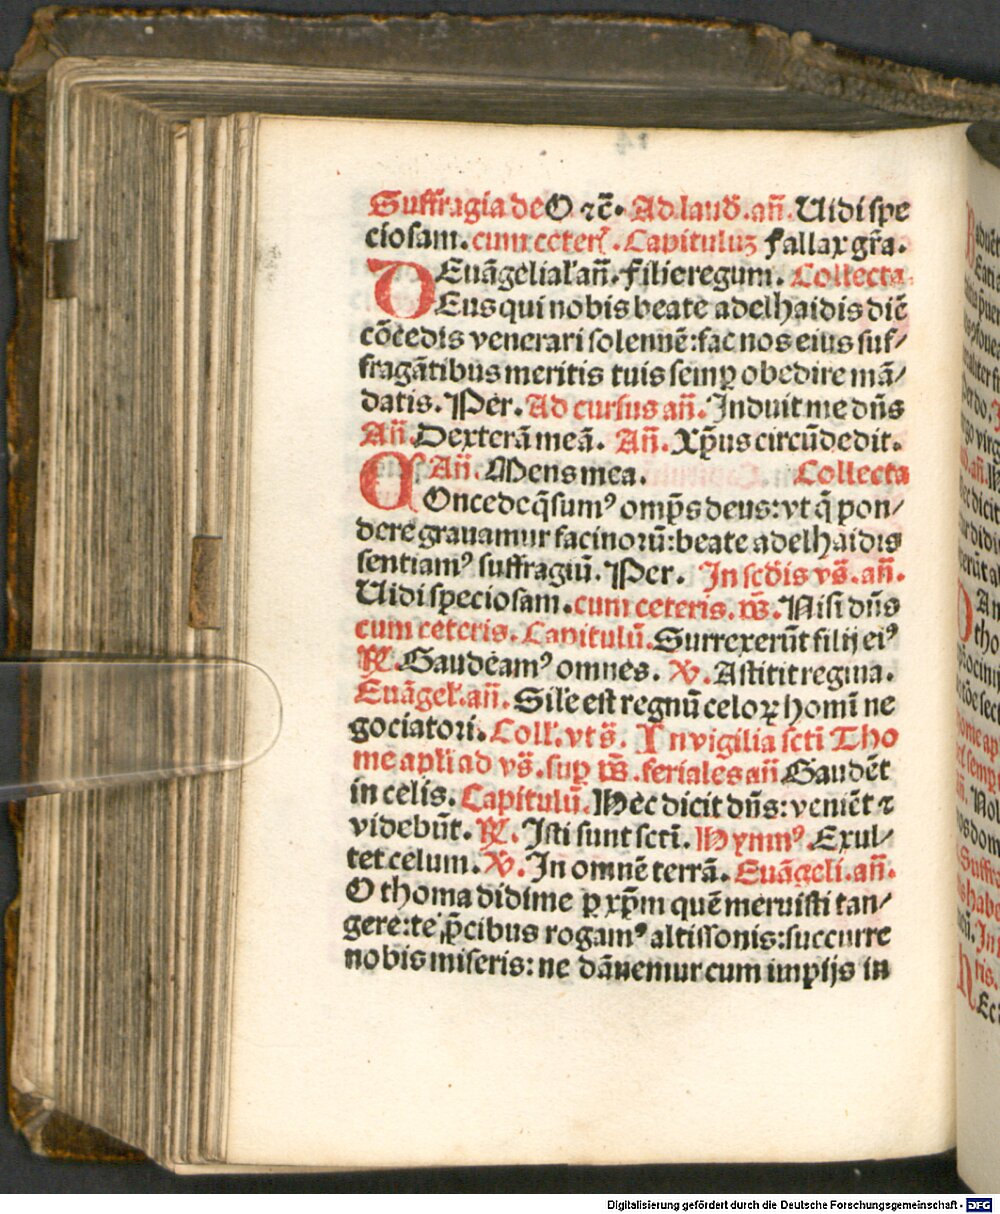 Suffragia de O ⁊c̄. Ad laud̄. an̄. Uidi spe
ciosam. cum ceter̄. Capituluȝ Fallax gr̄a.
Euāgelial̄ an̄. Filie regum. Collecta
DEus qui nobis beate adelhaidis diē
cōcedis venerari solennē: fac nos eius suf/
fragātibus meritis tuis semꝑ obedire mā/
datis. Per. Ad cursus an̄. Induit me dn̄s
An̄. Dexterā meā. An̄. Xp̄us circūdedit.
An̄. Mens mea. Collecta
COncede q̄sumꝰ omp̄s deus: vt q̄ pon/
dere grauamur facinorū: beate adelhaidis
sentiamꝰ suffragiū. Per. In scd̄is vs̄. an̄.
Uidi speciosam. cum ceteris. ps̄. Nisi dn̄s
cum ceteris. Capitulū. Surrexerūt filij eiꝰ
℟. Gaudeamꝰ omnes. ℣. Astitit regina.
Euāgel̄. an̄. Sil̄e est regnū celoꝝ homī ne
gociatori. Coll̄. vt s̄. In vigilia scti Tho
me apl̄i ad vs̄. suꝑ ps̄. feriales an̄ Gaudēt
in celis. Capitulū. Hec dicit dn̄s: veniēt ⁊
videbūt. ℟. Isti sunt sctī. Hymnꝰ. Exul/
tet celum. ℣. In omnē terrā. Euāgeli. an̄.
O thoma didime ꝑ xp̄m quē meruisti tan/
gere: te p̄cibus rogamꝰ altissonis: succurre
nobis miseris: ne dānemur cum impijs in
Digitalisierung gefördert durch die Deutsche Forschungsgemeinschaft - DFG